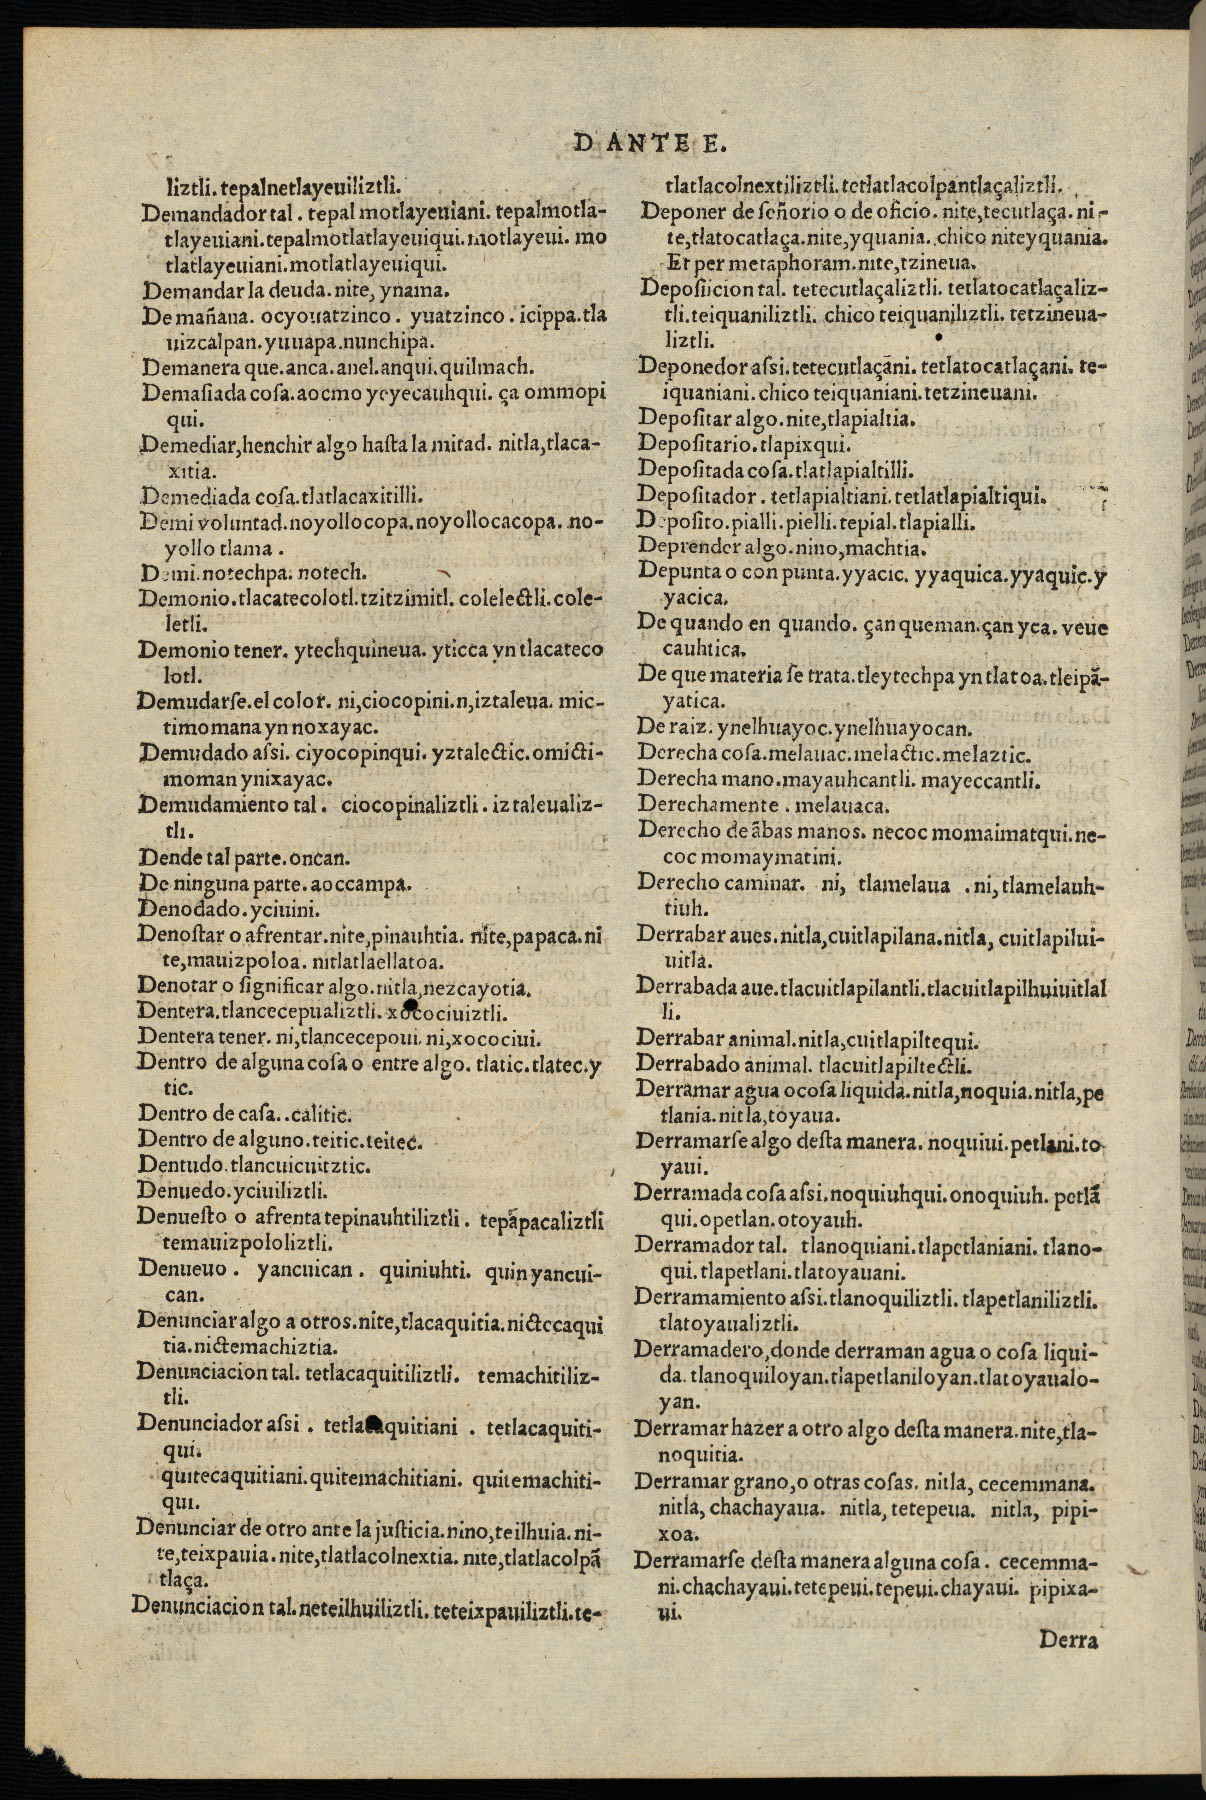 D ANTE E.
liztli. tepalnetlayeuiliztli.
Demandador tal. tepal motlayeuiani. tepalmotla-
tlayeuiani. tepalmotlatlayeuiqui. motlayeui. mo
tlatlayeuiani. motlatlayeuiqui.
Demandar la deuda. nite, ynama.
De mañana. ocyouatzinco. yuatzinco. icippa. tla
uizcalpan. yuuapa. nunchipa.
Demanera que. anca. anel. anqui. quilmach.
Demasiada cosa. aocmo yeyecauhqui. ça ommopi
qui.
Demediar, henchir algo hasta la mitad. nitla, tlaca-
xitia.
Demediada cosa. tlatlacaxitilli.
Demi voluntad. noyollocopa. noyollocacopa. no-
yollo tlama.
Demi. notechpa. notech.
Demonio. tlacatecolotl. tzitzimitl. colelectli. cole-
letli.
Demonio tener. ytechquineua. yticca yn tlacateco
lotl.
Demudarse. el color. ni, ciocopini. n, iztaleua. mic-
timomana yn noxayac.
Demudado assi. ciyocopinqui. yztalectic. omicti-
moman ynixayac.
Demudamiento tal. ciocopinaliztli. iztaleualiz-
tli.
Dende tal parte. oncan.
De ninguna parte. aoccampa.
Denodado. yciuini.
Denostar o afrentar. nite, pinauhtia. nite, papaca. ni
te, mauizpoloa. nitlatlaellatoa.
Denotar o significar algo. nitla, nezcayotia.
Dentera. tlancecepualiztli. xocociuiztli.
Dentera tener. ni, tlancecepoui. ni, xocociui.
Dentro de alguna cosa o entre algo. tlatic. tlatec. y
tic.
Dentro de casa. . calitic.
Dentro de alguno. teitic. teitec.
Dentudo. tlancuicuitztic.
Denuedo. yciuiliztli.
Denuesto o afrenta tepinauhtiliztli. tepāpacaliztli
temauizpololiztli.
Denueuo. yancuican. quiniuhti. quin yancui-
can.
Denunciar algo a otros. nite, tlacaquitia. nictecaqui
tia. nictemachiztia.
Denunciacion tal. tetlacaquitiliztli. temachitiliz-
tli.
Denunciador assi. tetlacaquitiani. tetlacaquiti-
qui.
quitecaquitiani. quitemachitiani. quitemachiti-
qui.
Denunciar de otro ante la justicia. nino, teilhuia. ni-
te, teixpauia. nite, tlatlacolnextia. nite, tlatlacolpā
tlaça.
Denunciacion tal. neteilhuiliztli. teteixpauiliztli. te-
tlatlacolnextiliztli. tetlatlacolpantlaçaliztli.
Deponer de señorio o de oficio. nite, tecutlaça. ni-
te, tlatocatlaça. nite, yquania. chico niteyquania.
Et per metaphoram. nite, tzineua.
Deposicion tal. tetecutlaçaliztli. tetlatocatlaçaliz-
tli. teiquaniliztli. chico teiquaniliztli. tetzineua-
liztli.
Deponedor assi. tetecutlaçāni. tetlatocatlaçani. te-
iquaniani. chico teiquaniani. tetzineuani.
Depositar algo. nite, tlapialtia.
Depositario. tlapixqui.
Depositada cosa. tlatlapialtilli.
Depositador. tetlapialtiani. tetlatlapialtiqui.
Deposito. pialli. pielli. tepial. tlapialli.
Deprender algo. nino, machtia.
Depunta o con punta. yyacic. yyaquica. yyaquic. y
yacica.
De quando en quando. çan queman. çan yca. veue
cauhtica.
De que materia se trata. tleytechpa yn tlatoa. tleipā-
yatica.
De raiz. ynelhuayoc. ynelhuayocan.
Derecha cosa. melauac. melactic. melaztic.
Derecha mano. mayauhcantli. mayeccantli.
Derechamente. melauaca.
Derecho de ābas manos. necoc momaimatqui. ne-
coc momaymatini.
Derecho caminar. ni, tlamelaua. ni, tlamelauh-
tiuh.
Derrabar aues. nitla, cuitlapilana. nitla, cuitlapilui-
uitla.
Derrabada aue. tlacuitlapilantli. tlacuitlapilhuiuitlal
li.
Derrabar animal. nitla, cuitlapiltequi.
Derrabado animal. tlacuitlapiltectli.
Derramar agua o cosa liquida. nitla, noquia. nitla, pe
tlania. nitla, toyaua.
Derramarse algo desta manera. noquiui. petlani. to
yaui.
Derramada cosa assi. noquiuhqui. onoquiuh. petlā
qui. opetlan. otoyauh.
Derramador tal. tlanoquiani. tlapetlaniani. tlano-
qui. tlapetlani. tlatoyauani.
Derramamiento assi. tlanoquiliztli. tlapetlaniliztli.
tlatoyaualiztli.
Derramadero, donde derraman agua o cosa liqui-
da. tlanoquiloyan. tlapetlaniloyan. tlatoyaualo-
yan.
Derramar hazer a otro algo desta manera. nite, tla-
noquitia.
Derramar grano, o otras cosas. nitla, cecemmana.
nitla, chachayaua. nitla, tetepeua. nitla, pipi-
xoa.
Derramarse desta manera alguna cosa. cecemma-
ni. chachayaui. tetepeui. tepeui. chayaui. pipixa-
ui.
Derra